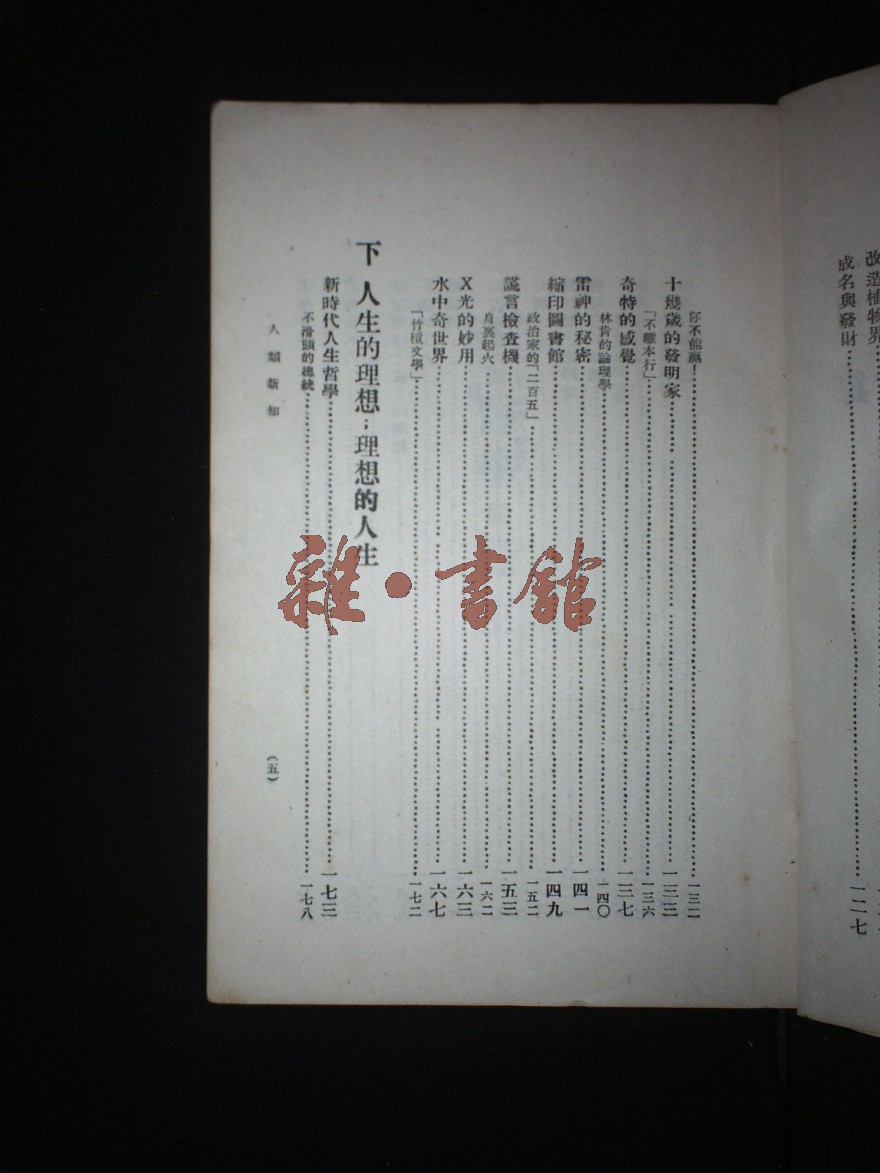 改造植物界
成名與發財……一二七
你不能贏！……一三二
十幾歲的發明家……一三三
「不離本行」……一三六
奇特的感覺……一三七
林肯的論理學……一四〇
雷神的秘密……一四一
縮印圖書館……一四九
政治家的「二百五」……一五二
謊言檢查機……一五三
身裏起火……一六二
X光的妙用……一六三
水中奇世界……一六七
「竹槓文學」……一七二
下 人生的理想；理想的人生
新時代人生哲學……一七三
不滑頭的總統……一七八
人類新知
（五）
雜·書館